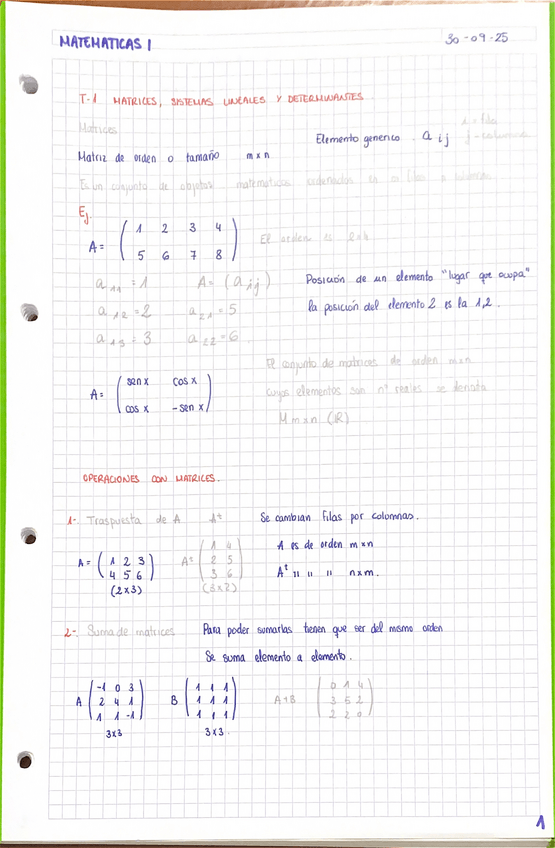 MATEMATICAS I
30-09-25
T.1 MATRICES, SISTEMAS LINEALES Y DETERMINANTES
Matrices
i = fila
Elemento generico. a ij j = columna
Matriz de orden o tamaño m x n
Es un conjunto de objetos matemáticos ordenados en m filas n columnas
Ej.
A = ( 1 2 3 4
5 6 7 8 ) El orden es 2x4
a 11 = 1 A = (a ij) Posición de un elemento "lugar que ocupa"
a 12 = 2 a 21 = 5 la posición del elemento 2 es la 1,2.
a 13 = 3 a 22 = 6
El conjunto de matrices de orden mxn
A = ( sen x cos x
cos x - sen x ) cuyos elementos son nº reales se denota
M mxn (R)
OPERACIONES CON MATRICES.
1- Traspuesta de A Aᵗ Se cambian filas por columnas.
A = ( 1 2 3
4 5 6 )
(2x3)
Aᵗ ( 1 4
2 5
3 6 )
(3x2)
A es de orden m x n
Aᵗ " " " n x m.
2-. Suma de matrices Para poder sumarlas tienen que ser del mismo orden
Se suma elemento a elemento.
A ( -1 0 3
2 4 1
1 1 -1 )
3x3
B ( 1 1 1
1 1 1
1 1 1 )
3x3.
A+B ( 0 1 4
3 5 2
2 2 0 )
1